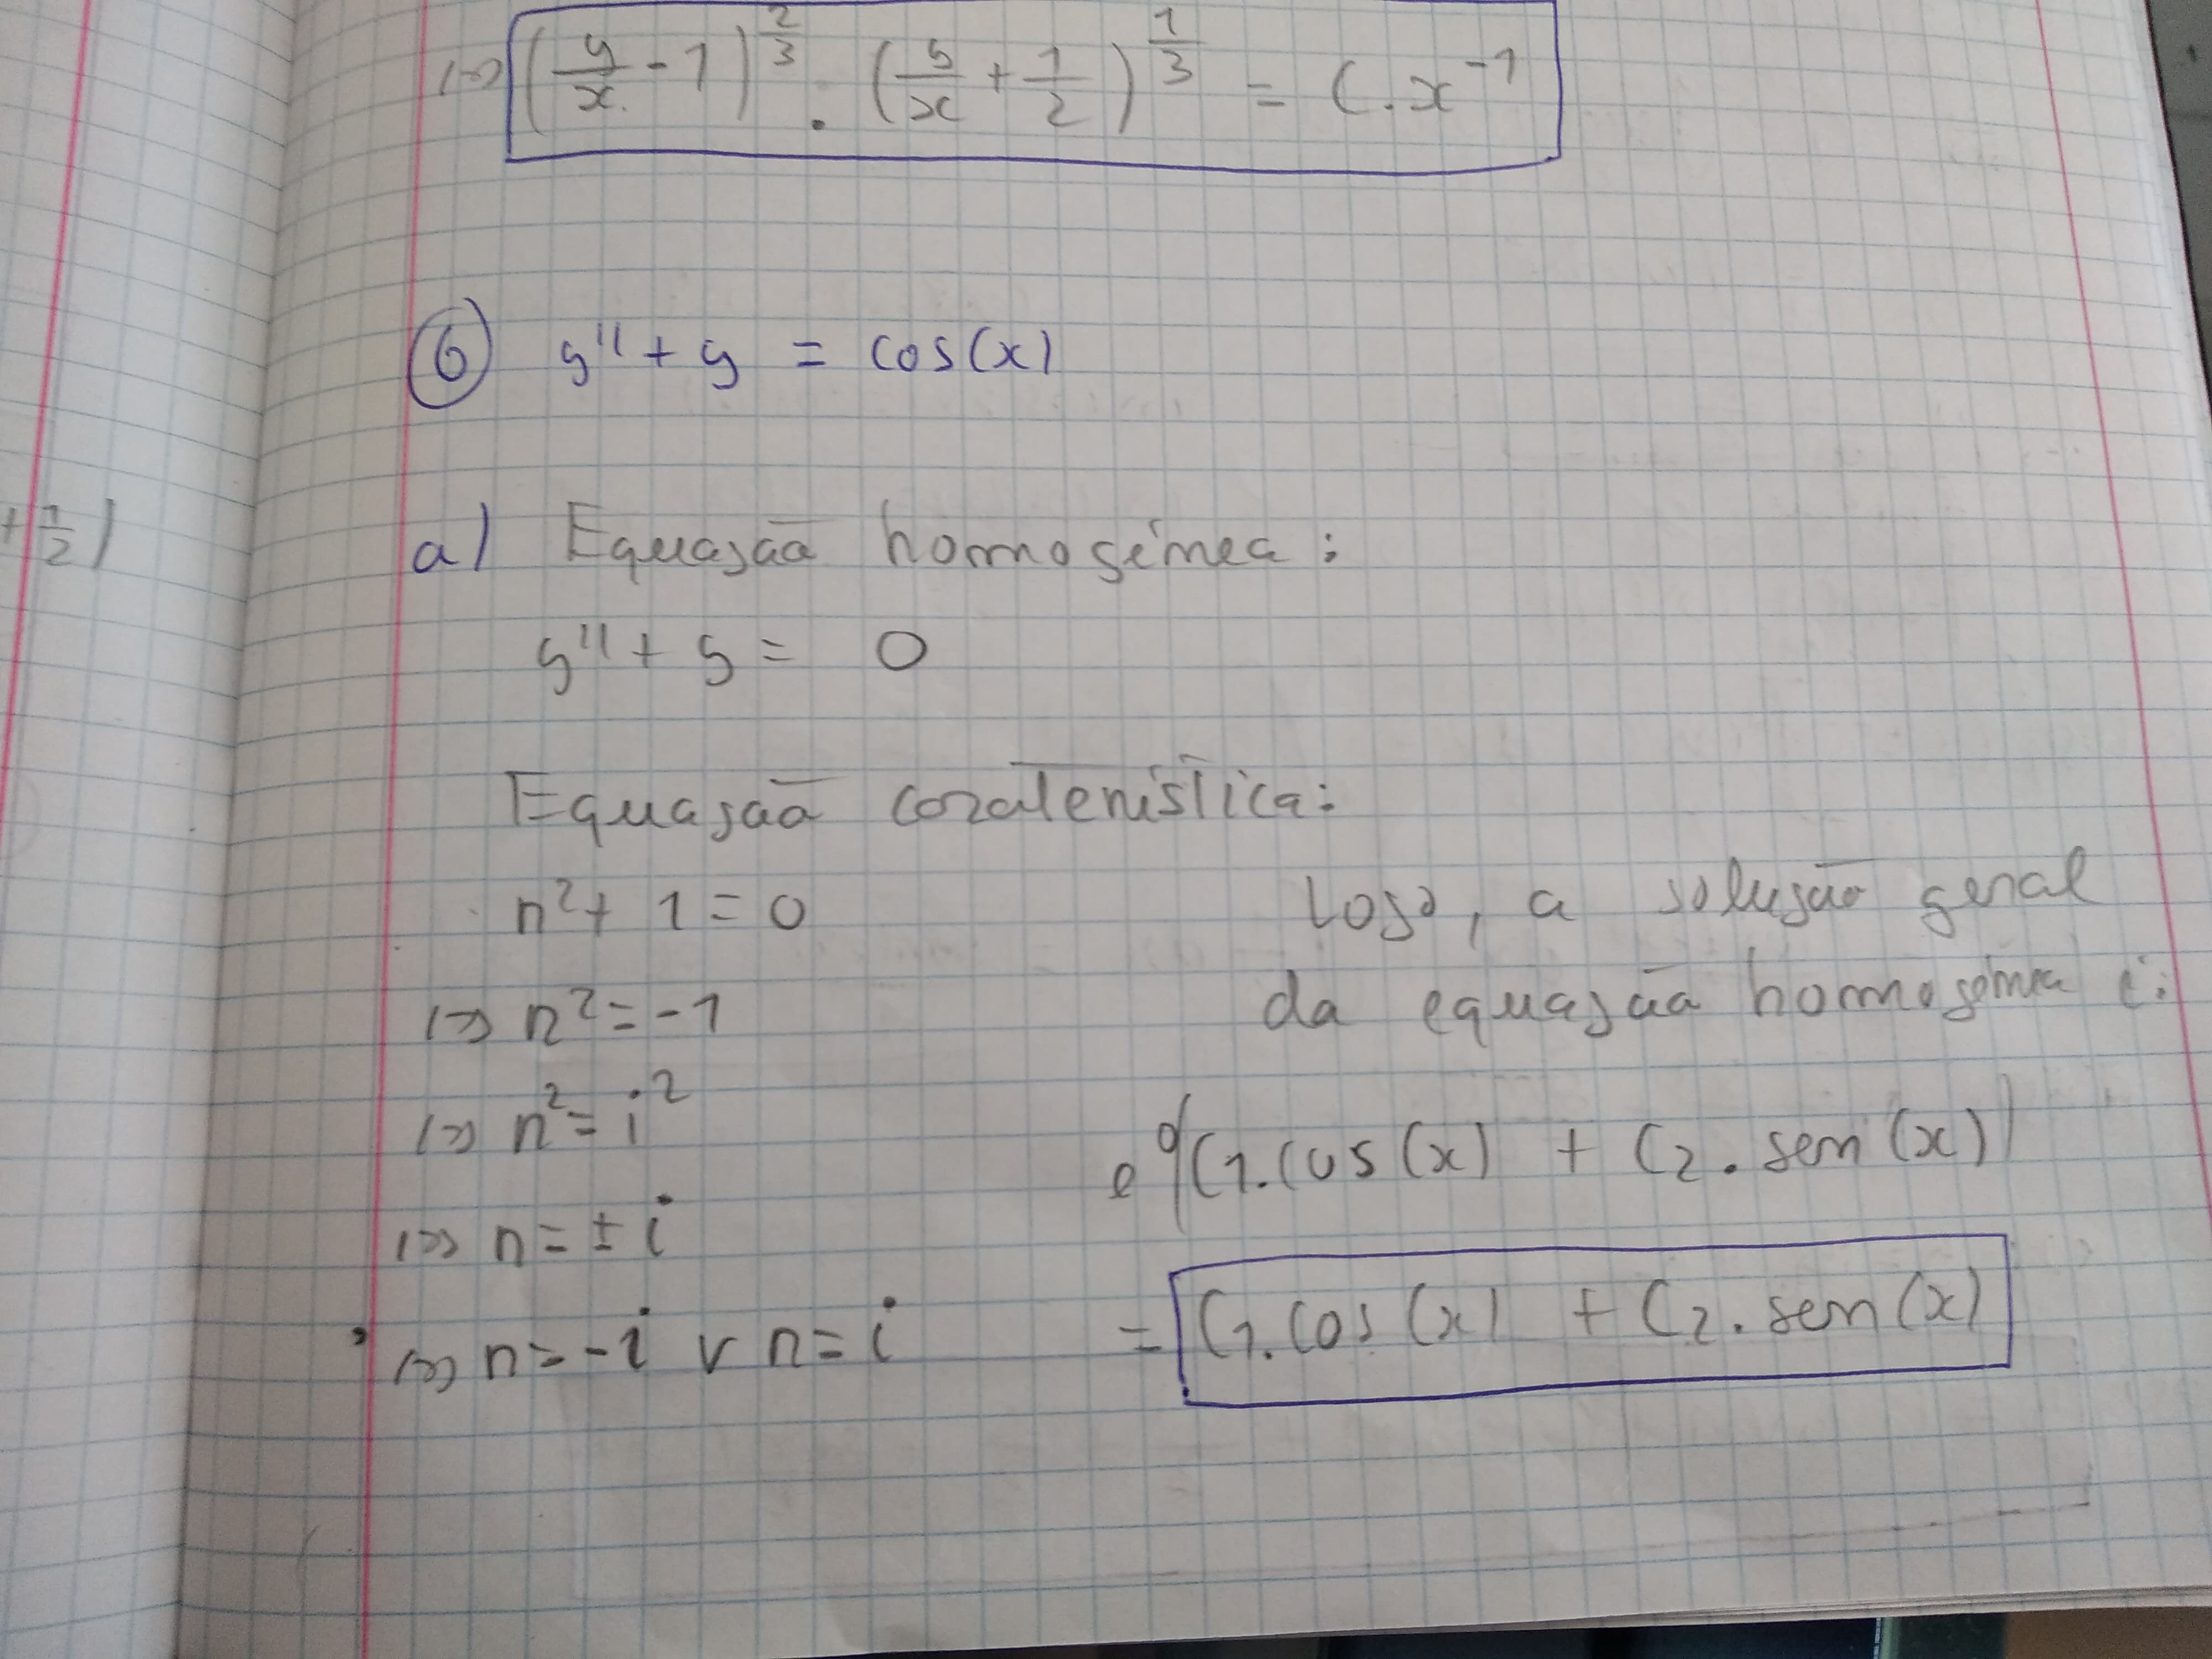 (=) (y/x - 1)^(2/3) . (y/x + 1/2)^(1/3) = C . x^-1
+ 1/2)
6 y'' + y = cos(x)
a) Equação homogénea:
y'' + y = 0
Equação caraterística:
r² + 1 = 0
(=) r² = -1
(=) r² = i²
(=) r = ± i
(=) r = -i v r = i
Logo, a solução geral
da equação homogénea é:
e^0 (C1.cos(x) + C2.sen(x))
= C1.cos(x) + C2.sen(x)